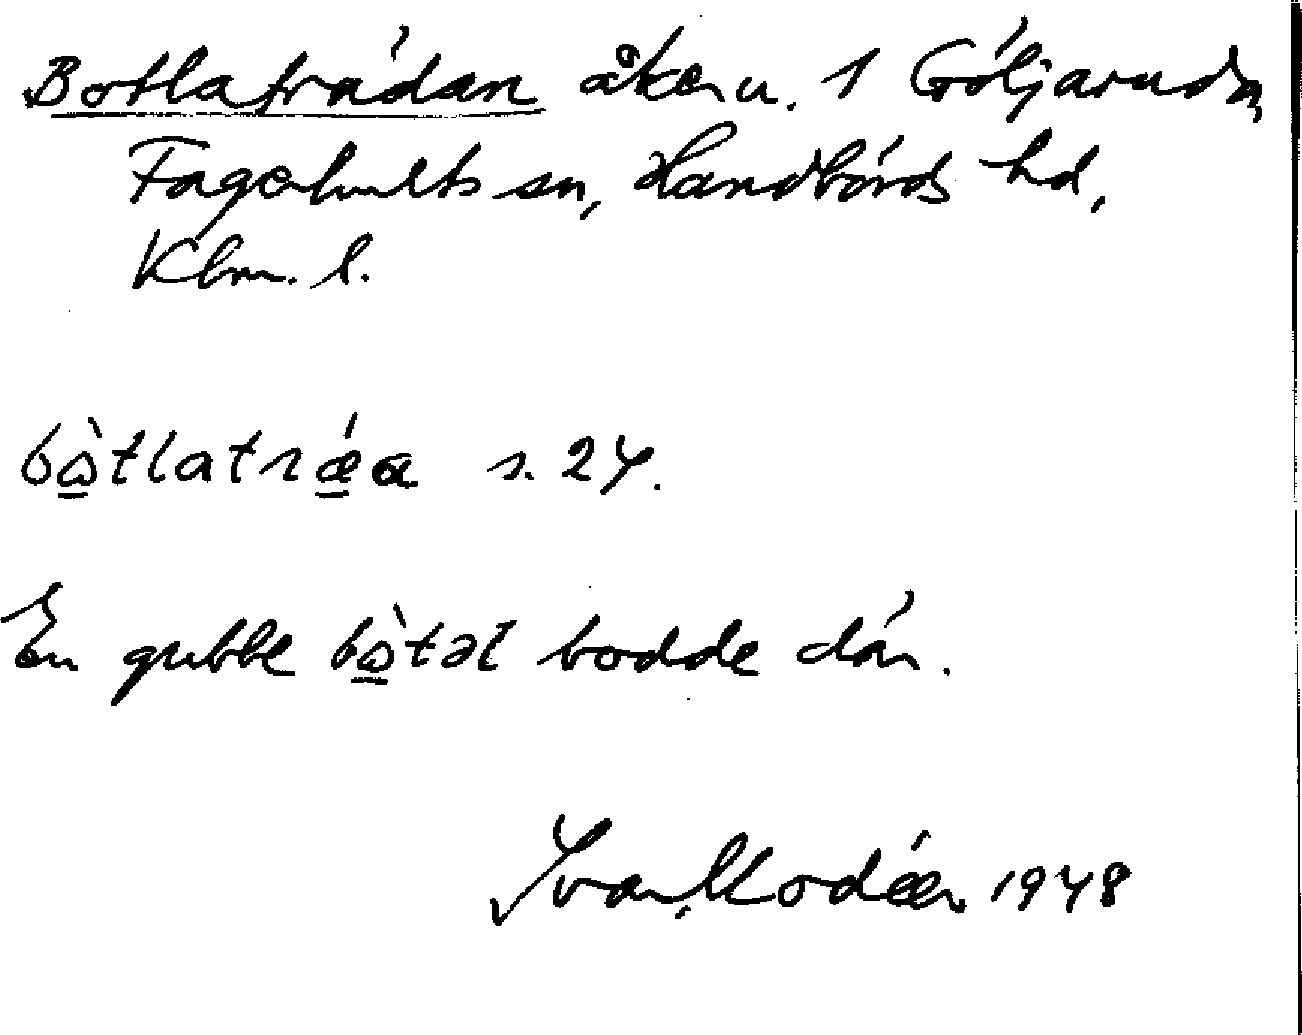 Botlaträdan åker u. 1 Göljaryda,
Fagerhults sn, Handbörds hd,
Klm. l.
bàtlatrǽa s. 24.
En gubbe bàtəl bodde där.
Ivar Modéer. 1948